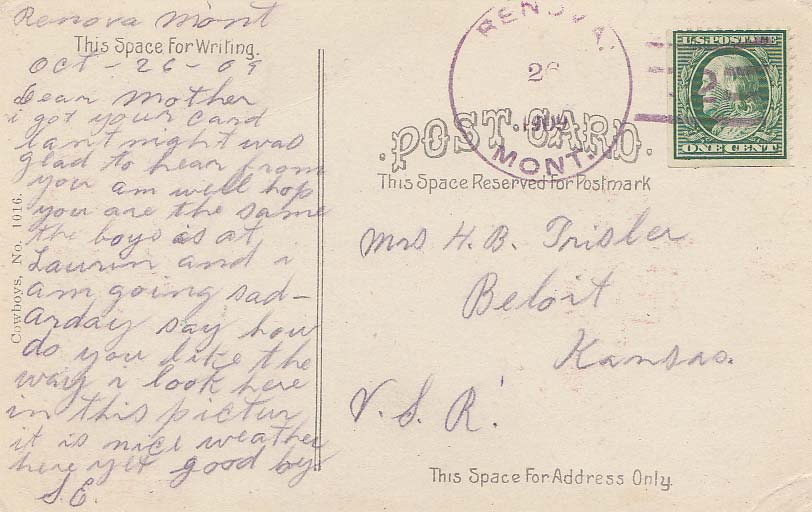 Renova Mont
This Space For Writing.
Oct - 26 - 09
Dear Mother
i got your card
last night was
glad to hear from
you am well hop
you are the same
the boys is at
Laurin and i
am going sad-
arday say how
do you like the
way i look here
in this pictur
it is nice weather
here yet good by
S.E.
Cowboys, No. 1016.
RENOVA.
26
1909
MONT.
U.S. POSTAGE
ONE CENT
POST CARD.
This Space Reserved for Postmark
Mrs H. B. Trisler
Beloit
Kansas.
V. S. R.
This Space For Address Only.